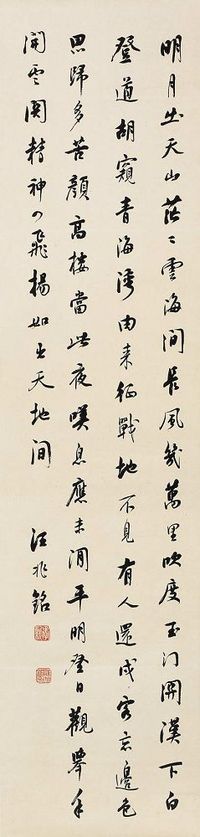 明月出天山茫〻雲海間長風幾萬里吹度玉門關漢下白
登道胡窺青海灣由来征戰地不見有人還戍客望邊色
思歸多苦顏高樓當此夜嘆息應未閒平明登日觀舉手
開雲關精神四飛揚如出天地間
汪兆銘